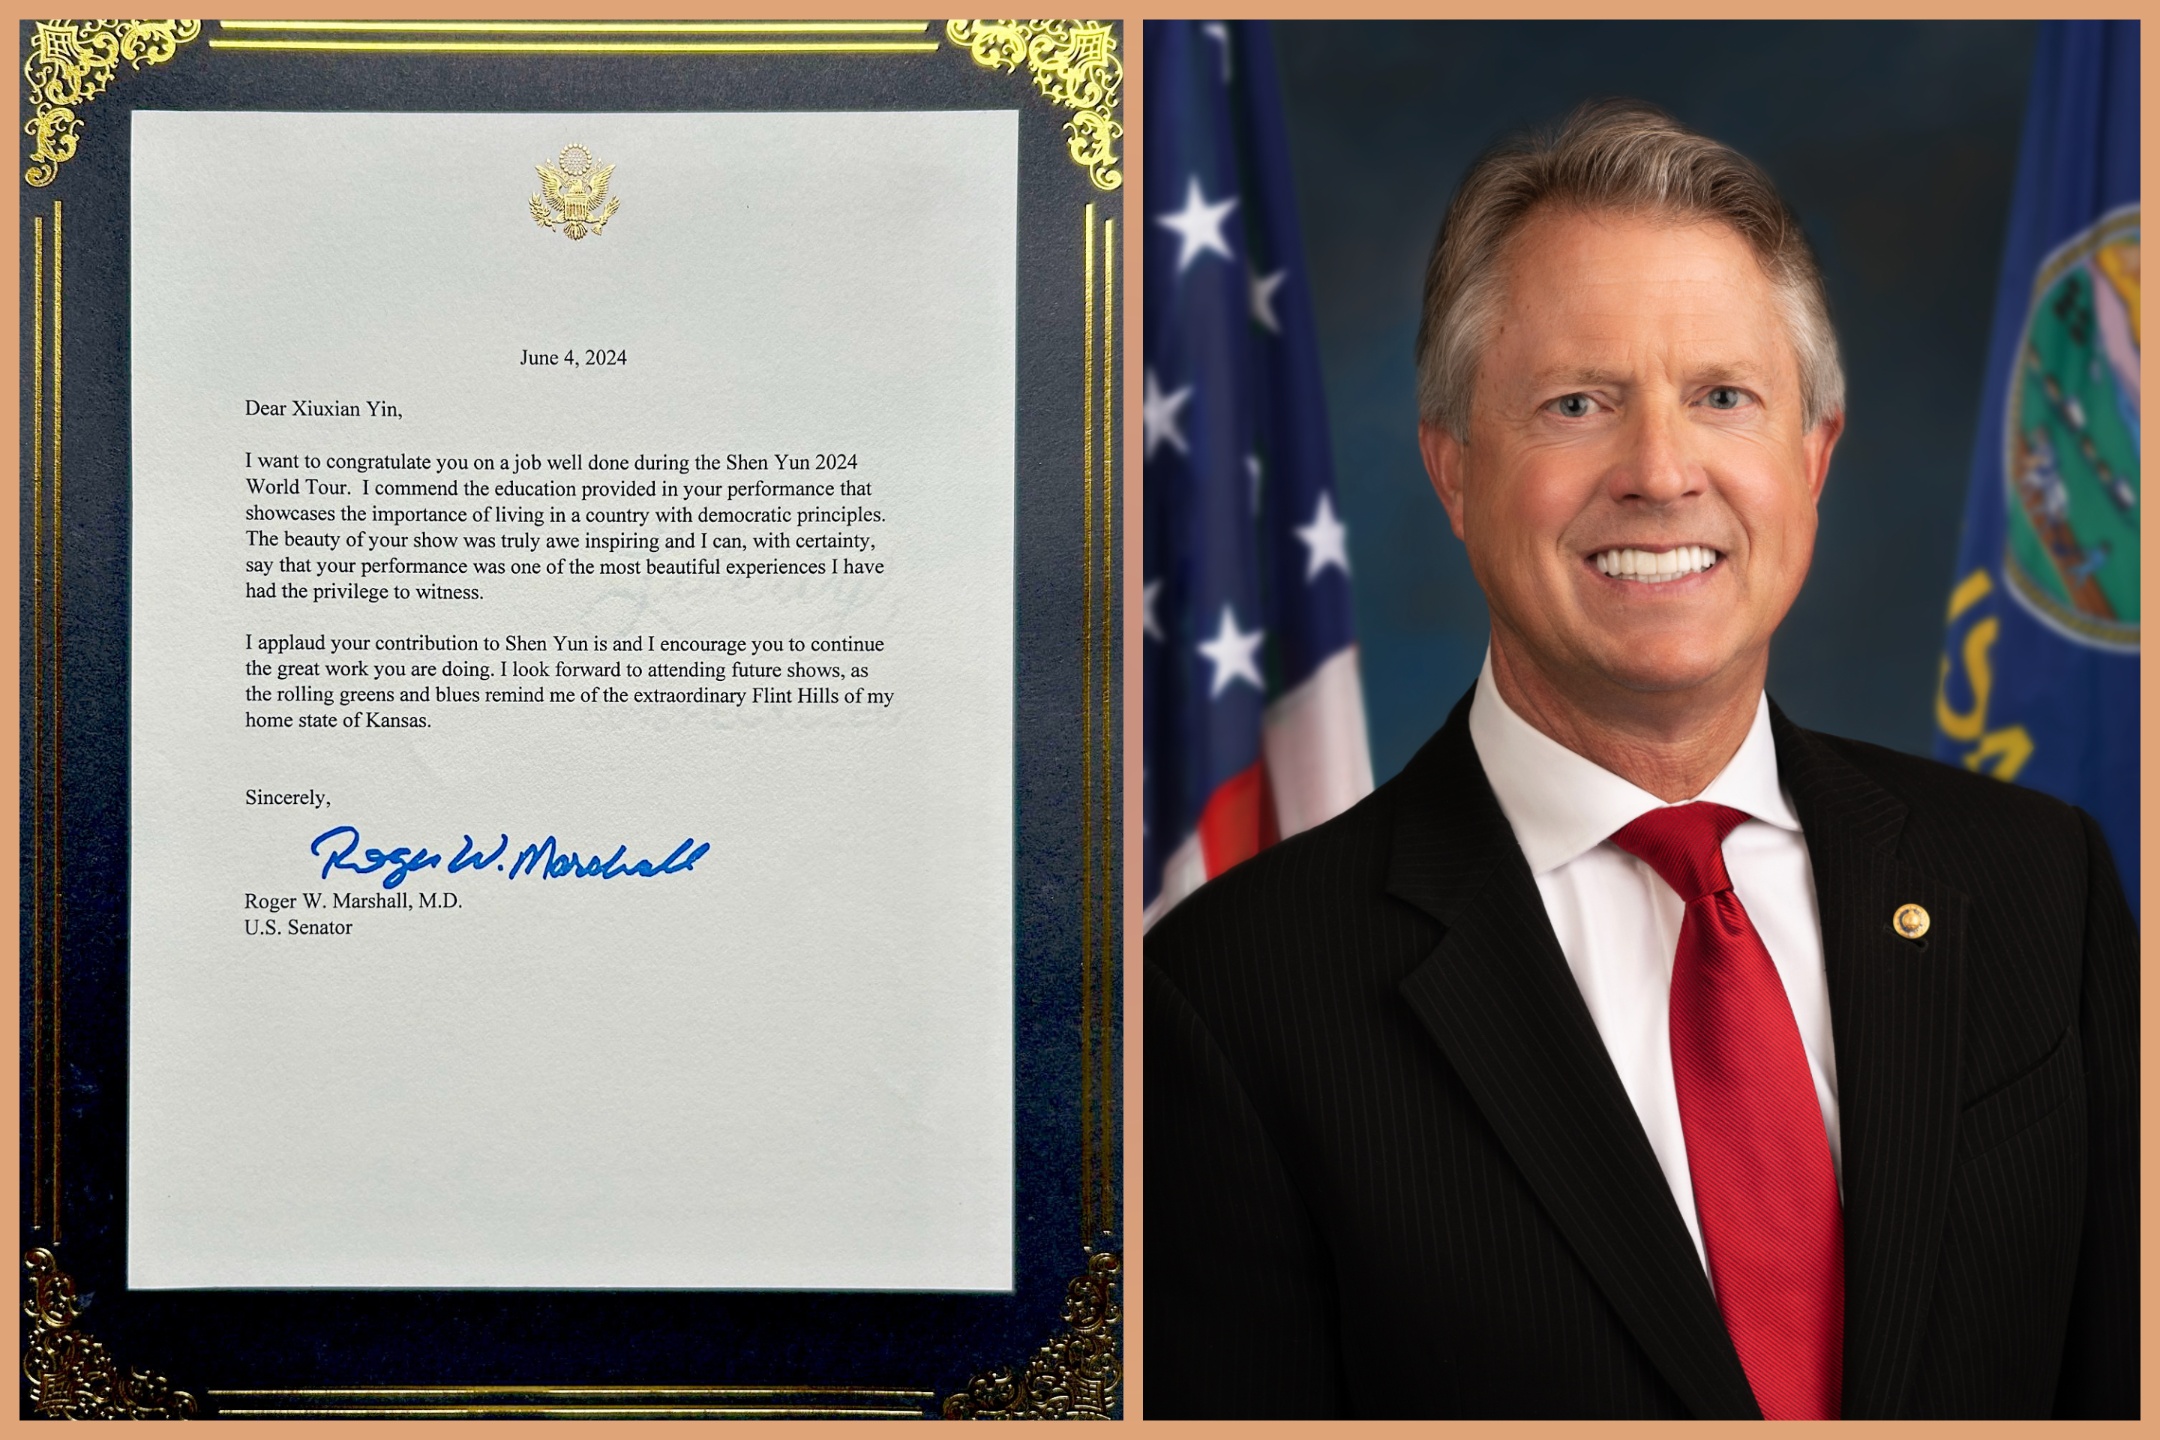 June 4, 2024
Dear Xiuxian Yin,
I want to congratulate you on a job well done during the Shen Yun 2024
World Tour.  I commend the education provided in your performance that
showcases the importance of living in a country with democratic principles.
The beauty of your show was truly awe inspiring and I can, with certainty,
say that your performance was one of the most beautiful experiences I have
had the privilege to witness.
I applaud your contribution to Shen Yun is and I encourage you to continue
the great work you are doing. I look forward to attending future shows, as
the rolling greens and blues remind me of the extraordinary Flint Hills of my
home state of Kansas.
Sincerely,
Roger W. Marshall
Roger W. Marshall, M.D.
U.S. Senator